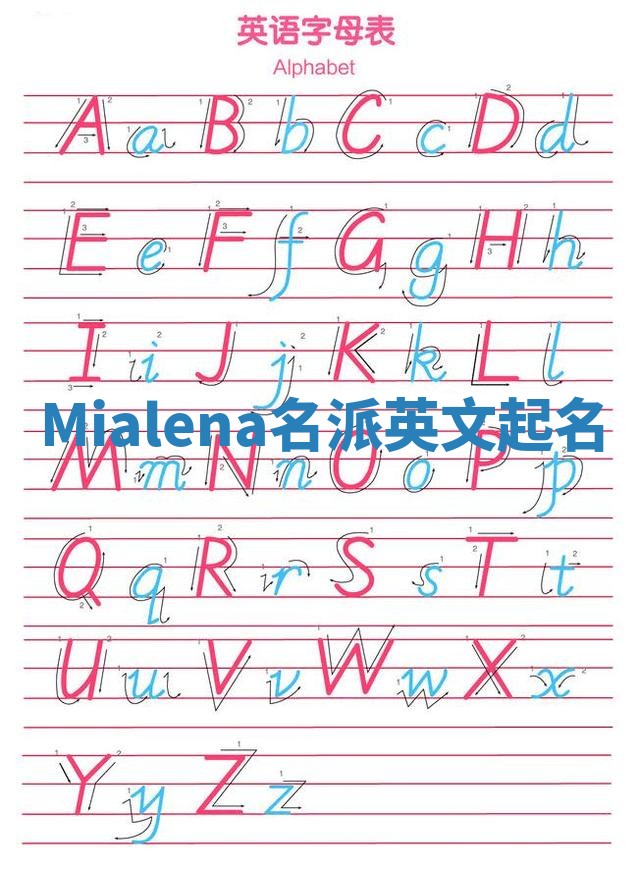 英语字母表
Alphabet
A a B b C c D d
E e F f G g H h
I i J j K k L l
Mialena名派英文起名
M m N n O o P p
Q q R r S s T t
U u V v W w X x
Y y Z z